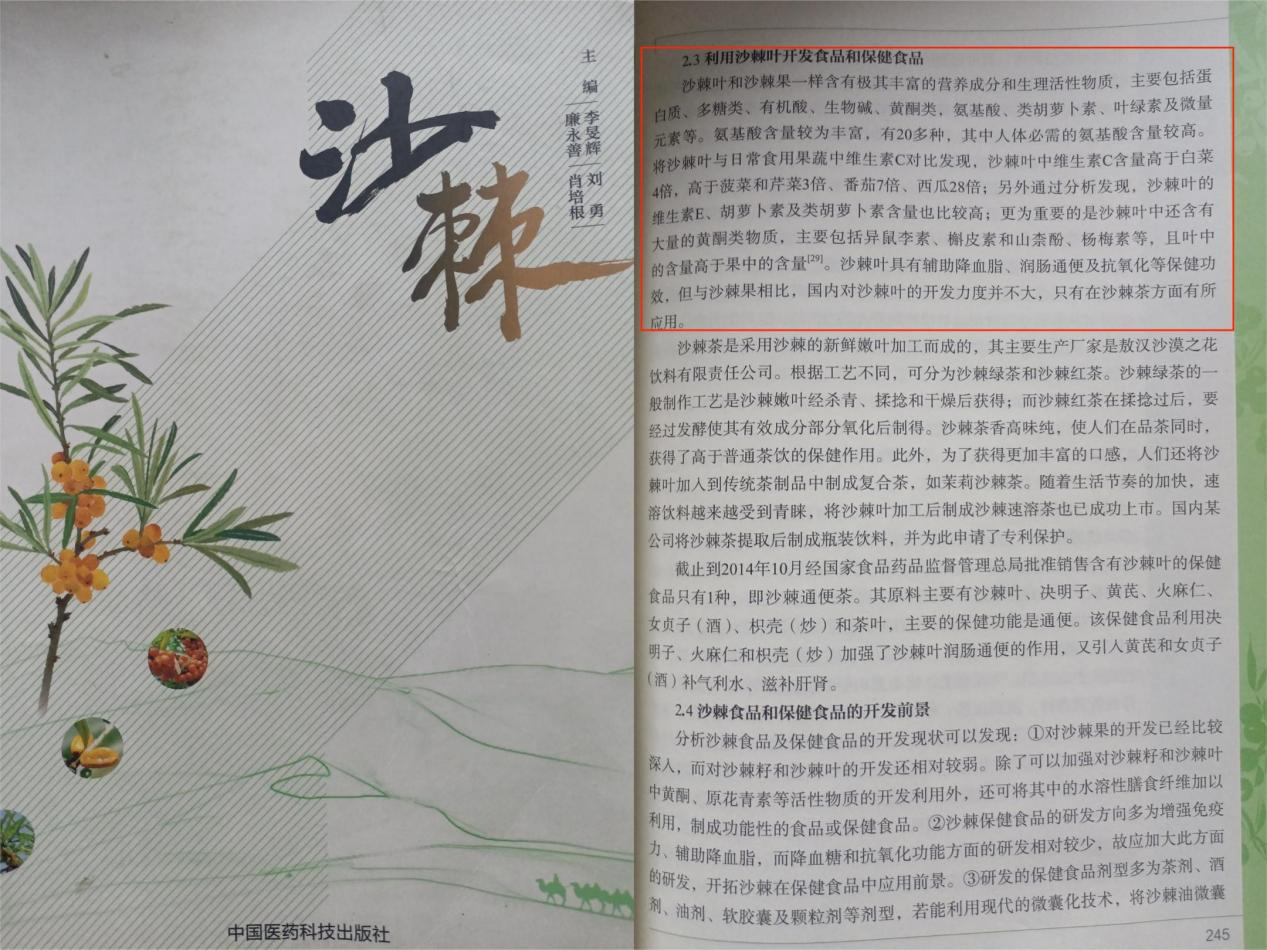 主编
李旻辉 刘勇
廉永善 肖培根
沙棘
中国医药科技出版社
2.3 利用沙棘叶开发食品和保健食品
沙棘叶和沙棘果一样含有极其丰富的营养成分和生理活性物质，主要包括蛋
白质、多糖类、有机酸、生物碱、黄酮类，氨基酸、类胡萝卜素、叶绿素及微量
元素等。氨基酸含量较为丰富，有20多种，其中人体必需的氨基酸含量较高。
将沙棘叶与日常食用果蔬中维生素C对比发现，沙棘叶中维生素C含量高于白菜
4倍，高于菠菜和芹菜3倍、番茄7倍、西瓜28倍；另外通过分析发现，沙棘叶的
维生素E、胡萝卜素及类胡萝卜素含量也比较高；更为重要的是沙棘叶中还含有
大量的黄酮类物质，主要包括异鼠李素、槲皮素和山柰酚、杨梅素等，且叶中
的含量高于果中的含量[29]。沙棘叶具有辅助降血脂、润肠通便及抗氧化等保健功
效，但与沙棘果相比，国内对沙棘叶的开发力度并不大，只有在沙棘茶方面有所
应用。
沙棘茶是采用沙棘的新鲜嫩叶加工而成的，其主要生产厂家是敖汉沙漠之花
饮料有限责任公司。根据工艺不同，可分为沙棘绿茶和沙棘红茶。沙棘绿茶的一
般制作工艺是沙棘嫩叶经杀青、揉捻和干燥后获得；而沙棘红茶在揉捻过后，要
经过发酵使其有效成分部分氧化后制得。沙棘茶香高味纯，使人们在品茶同时，
获得了高于普通茶饮的保健作用。此外，为了获得更加丰富的口感，人们还将沙
棘叶加入到传统茶制品中制成复合茶，如茉莉沙棘茶。随着生活节奏的加快，速
溶饮料越来越受到青睐，将沙棘叶加工后制成沙棘速溶茶也已成功上市。国内某
公司将沙棘茶提取后制成瓶装饮料，并为此申请了专利保护。
截止到2014年10月经国家食品药品监督管理总局批准销售含有沙棘叶的保健
食品只有1种，即沙棘通便茶。其原料主要有沙棘叶、决明子、黄芪、火麻仁、
女贞子（酒）、枳壳（炒）和茶叶，主要的保健功能是通便。该保健食品利用决
明子、火麻仁和枳壳（炒）加强了沙棘叶润肠通便的作用，又引入黄芪和女贞子
（酒）补气利水、滋补肝肾。
2.4 沙棘食品和保健食品的开发前景
分析沙棘食品及保健食品的开发现状可以发现：①对沙棘果的开发已经比较
深入，而对沙棘籽和沙棘叶的开发还相对较弱。除了可以加强对沙棘籽和沙棘叶
中黄酮、原花青素等活性物质的开发利用外，还可将其中的水溶性膳食纤维加以
利用，制成功能性的食品或保健食品。②沙棘保健食品的研发方向多为增强免疫
力、辅助降血脂，而降血糖和抗氧化功能方面的研发相对较少，故应加大此方面
的研发，开拓沙棘在保健食品中应用前景。③研发的保健食品剂型多为茶剂、酒
剂、油剂、软胶囊及颗粒剂等剂型，若能利用现代的微囊化技术，将沙棘油微囊
245